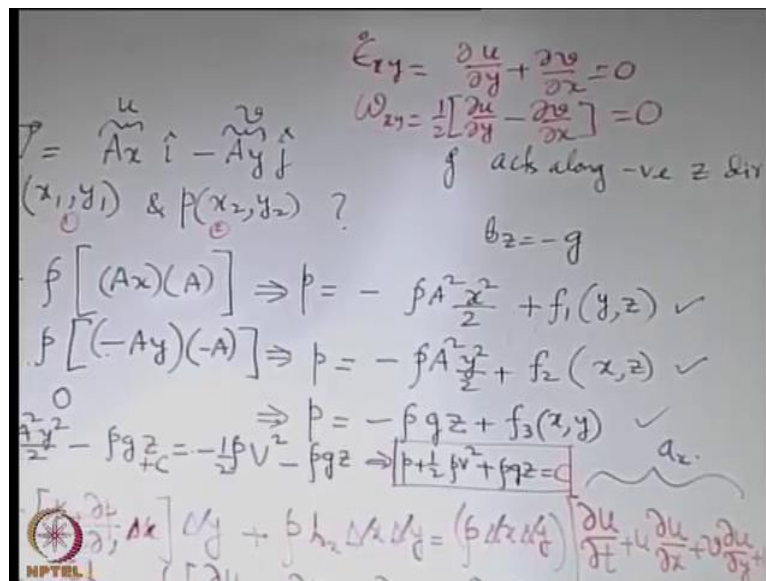 ε̇xy = ∂u/∂y + ∂v/∂x = 0
ωxy = 1/2 [∂u/∂y - ∂v/∂x] = 0
u v
V = Ax î - Ay ĵ
g acts along -ve z dir
(x1, y1) & p(x2, y2) ?
① ②
bz = -g
ρ[(Ax)(A)] ⇒ p = - ρA²x²/2 + f1(y,z) ✓
ρ[(-Ay)(-A)] ⇒ p = - ρA²y²/2 + f2(x,z) ✓
0
⇒ p = -ρgz + f3(x,y) ✓
A²y²/2 - ρgz + C = -1/2 ρV² - ρgz ⇒ p + 1/2 ρV² + ρgz = C
ax.
Δx] Δy + ρ bx Δx Δy = (ρ Δx Δy) [∂u/∂t + u ∂u/∂x + v ∂u/∂y +
NPTEL